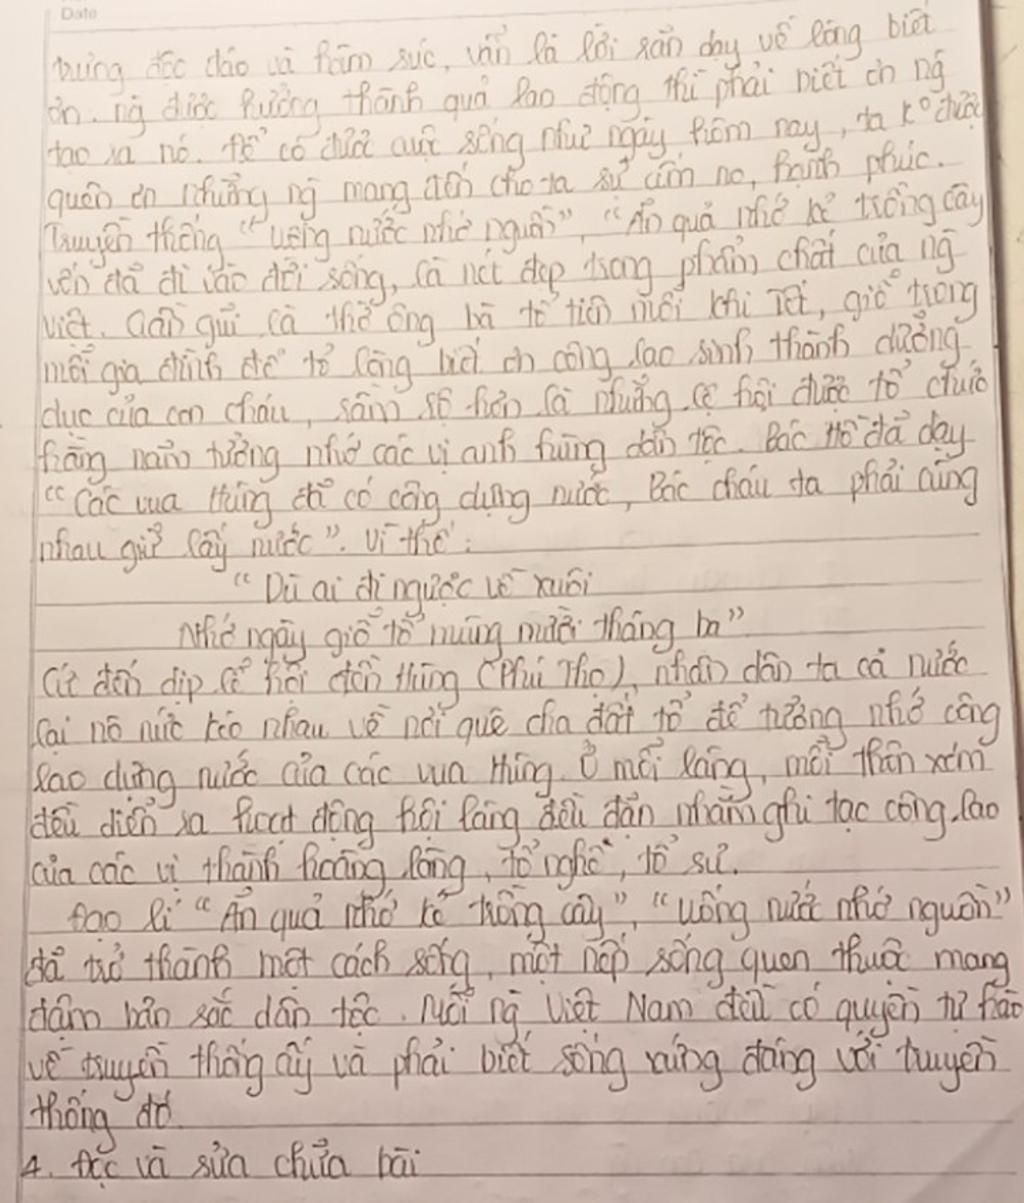 Date
trưng độc đáo và hàm súc, vẫn là lời răn dạy về lòng biết
ơn. ng được hưởng thành quả lao động thì phải biết ơn ng
tạo ra nó. Để có được cuộc sống như ngày hôm nay, ta k° được
quên ơn những ng mang đến cho ta sự ấm no, hạnh phúc.
Truyền thống "uống nước nhớ nguồn", "Ăn quả nhớ kẻ trồng cây
vốn đã đi vào đời sống, là nét đẹp trong phẩm chất của ng
việt. Gần gũi là thờ ông bà tổ tiên mỗi khi Tết, giỗ trong
mỗi gia đình để tỏ lòng biết ơn công lao sinh thành dưỡng
dục của con cháu, sâm sê hơn là những lễ hội được tổ chức
hằng năm tưởng nhớ các vị anh hùng dân tộc. Bác Hồ đã dạy
"Các vua Hùng đã có công dựng nước, Bác cháu ta phải cùng
nhau giữ lấy nước". Vì thế:
"Dù ai đi ngược về xuôi
Nhớ ngày giỗ tổ mùng mười tháng ba"
Cứ đến dịp lễ hội đền Hùng (Phú Thọ), nhân dân ta cả nước
lại nô nức kéo nhau về nơi quê cha đất tổ để tưởng nhớ công
lao dựng nước của các vua Hùng. Ở mỗi làng, mỗi thôn xóm
đều diễn ra hoạt động hội làng đều đặn nhằm ghi tạc công lao
của các vị thành hoàng làng, tổ nghề, tổ sư.
Đạo lí "Ăn quả nhớ kẻ trồng cây", "uống nước nhớ nguồn"
đã trở thành một cách sống, một nếp sống quen thuộc mang
đậm bản sắc dân tộc. Mỗi ng Việt Nam đều có quyền tự hào
về truyền thống ấy và phải biết sống xứng đáng với truyền
thống đó.
4. Đọc và sửa chữa bài